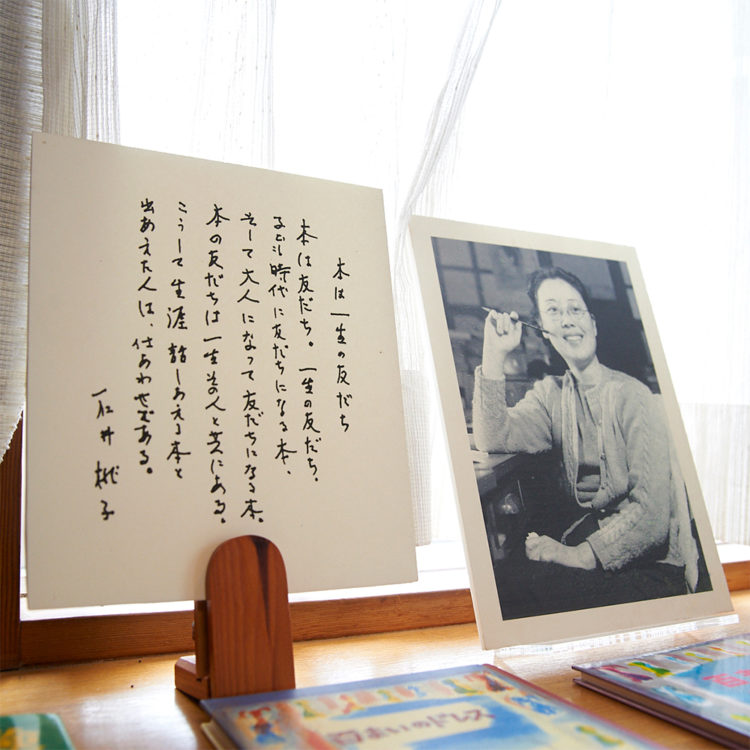 本は一生の友だち
本は友だち。一生の友だち。
子ども時代に友だちになる本、
そして大人になって友だちになる本。
本の友だちは一生その人と共にある。
こうして生涯話しあえる本と
出あえた人は、仕あわせである。
石井桃子
百まいのドレス